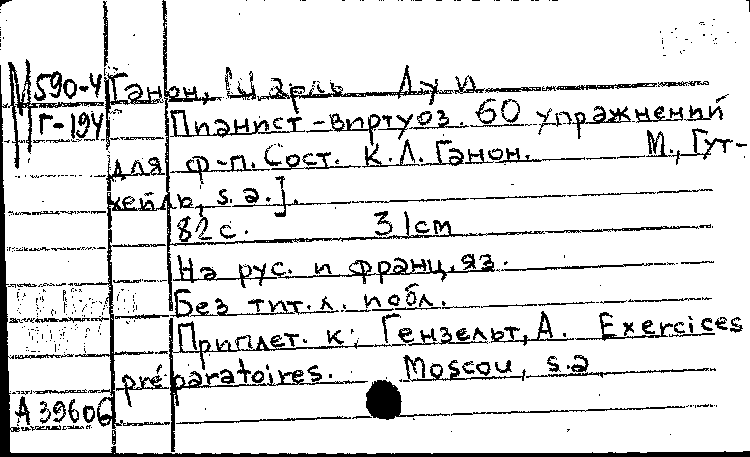 М590-4 Ганон, Шарль Луи
Г-194 Пианист-виртуоз. 60 упражнений
для ф-п. Сост. К.Л. Ганон. М., Гут-
хейль, s.a.].
82 с. 31cm
На рус. и франц. яз.
Без тит. л. и обл.
Приплет. к: Гензельт, А. Exercices
préparatoires. Moscou, s.a
А 39606